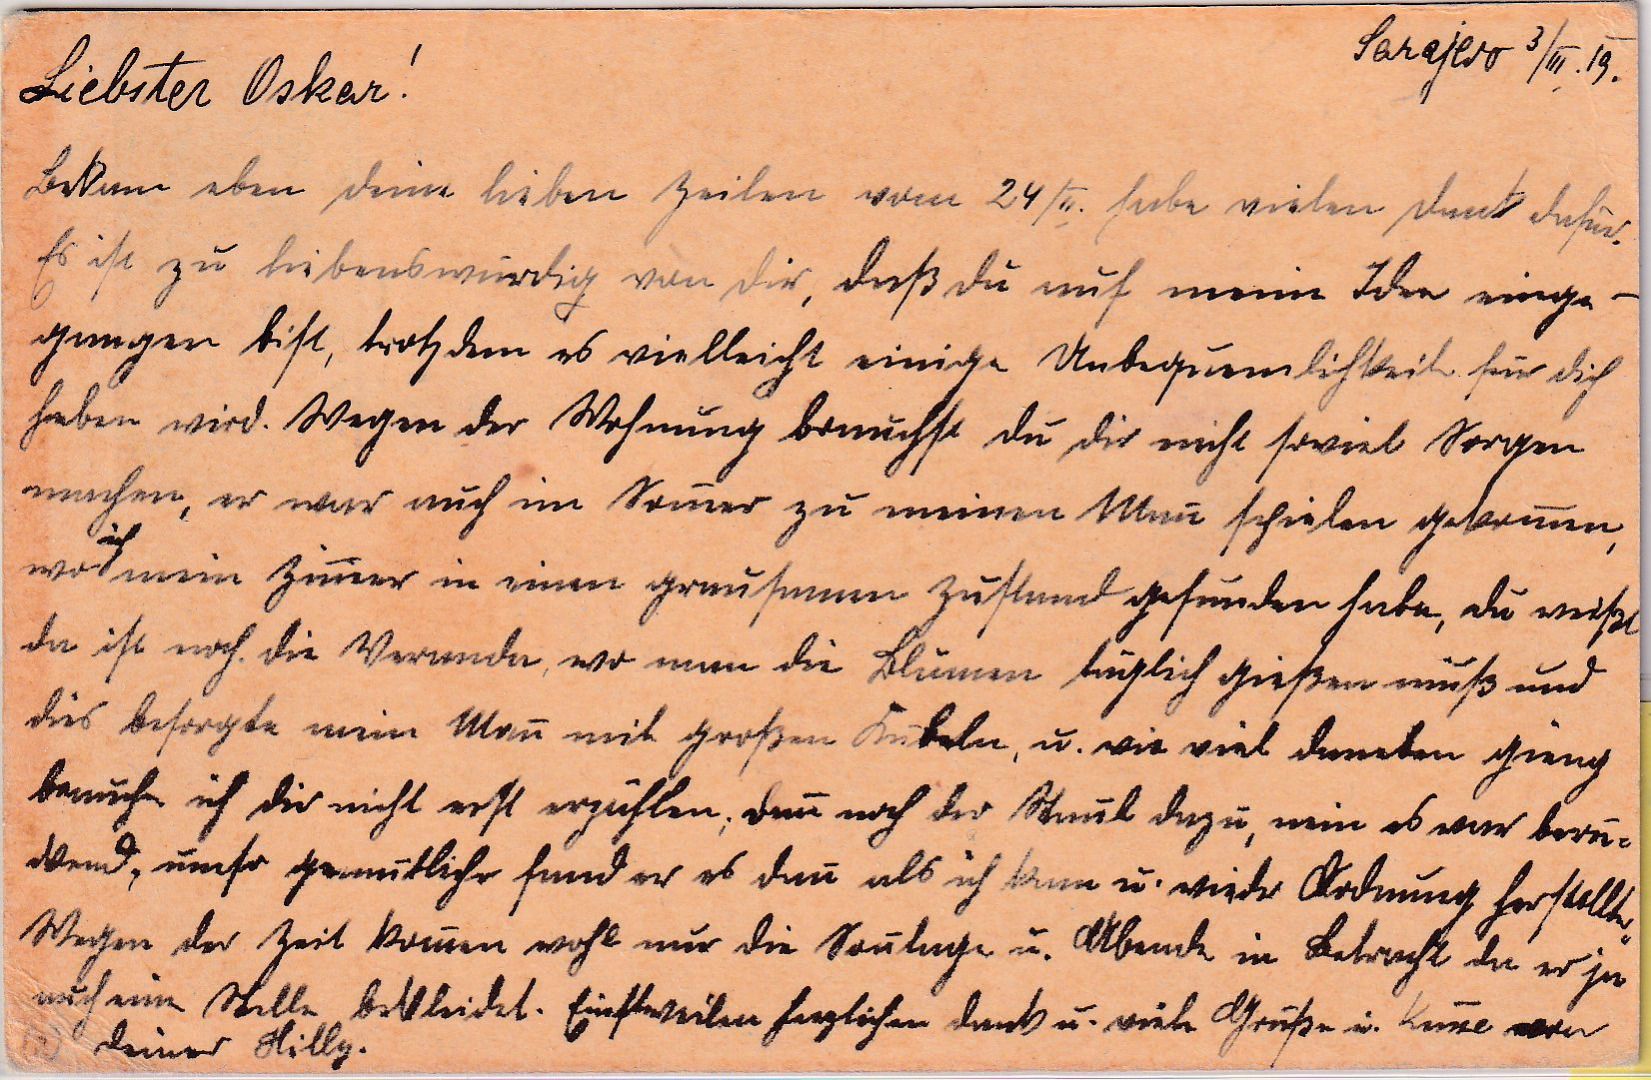 Sarajevo 3/III. 19.
Liebster Oskar!
Bekam eben deine lieben Zeilen vom 24/II. habe vielen Dank dafür.
Es ist zu liebenswürdig von dir, daß du auf meine Idee einge-
gangen bist, trotzdem es vielleicht einige Unbequemlichkeit für dich
haben wird. Wegen der Wohnung brauchst du dir nicht soviel Sorgen
machen, er war auch im Som̅er zu meinen Man̅ spielen gekom̅en,
wo ich mein Zim̅er in einen grausamen Zustand gefunden habe, du weißt
da ist noch die Veranda, wo man die Blumen täglich gießen muß und
dies besorgte mein Man̅ mit großen Kübeln, u. wie viel daneben gieng
brauche ich dir nicht erst erzählen, dan̅ noch der Staub dazu, nein es war
umso gemütlicher fand er es dan̅ als ich kam u. wieder Ordnung herstellte.
Wegen der Zeit kom̅en wohl nur die Son̅tage u. Abende in Betracht da er ja
auch eine Stelle bekleidet. Einstweilen herzlichen Dank u. viele Grüße u. Küsse von
deiner Hilly.